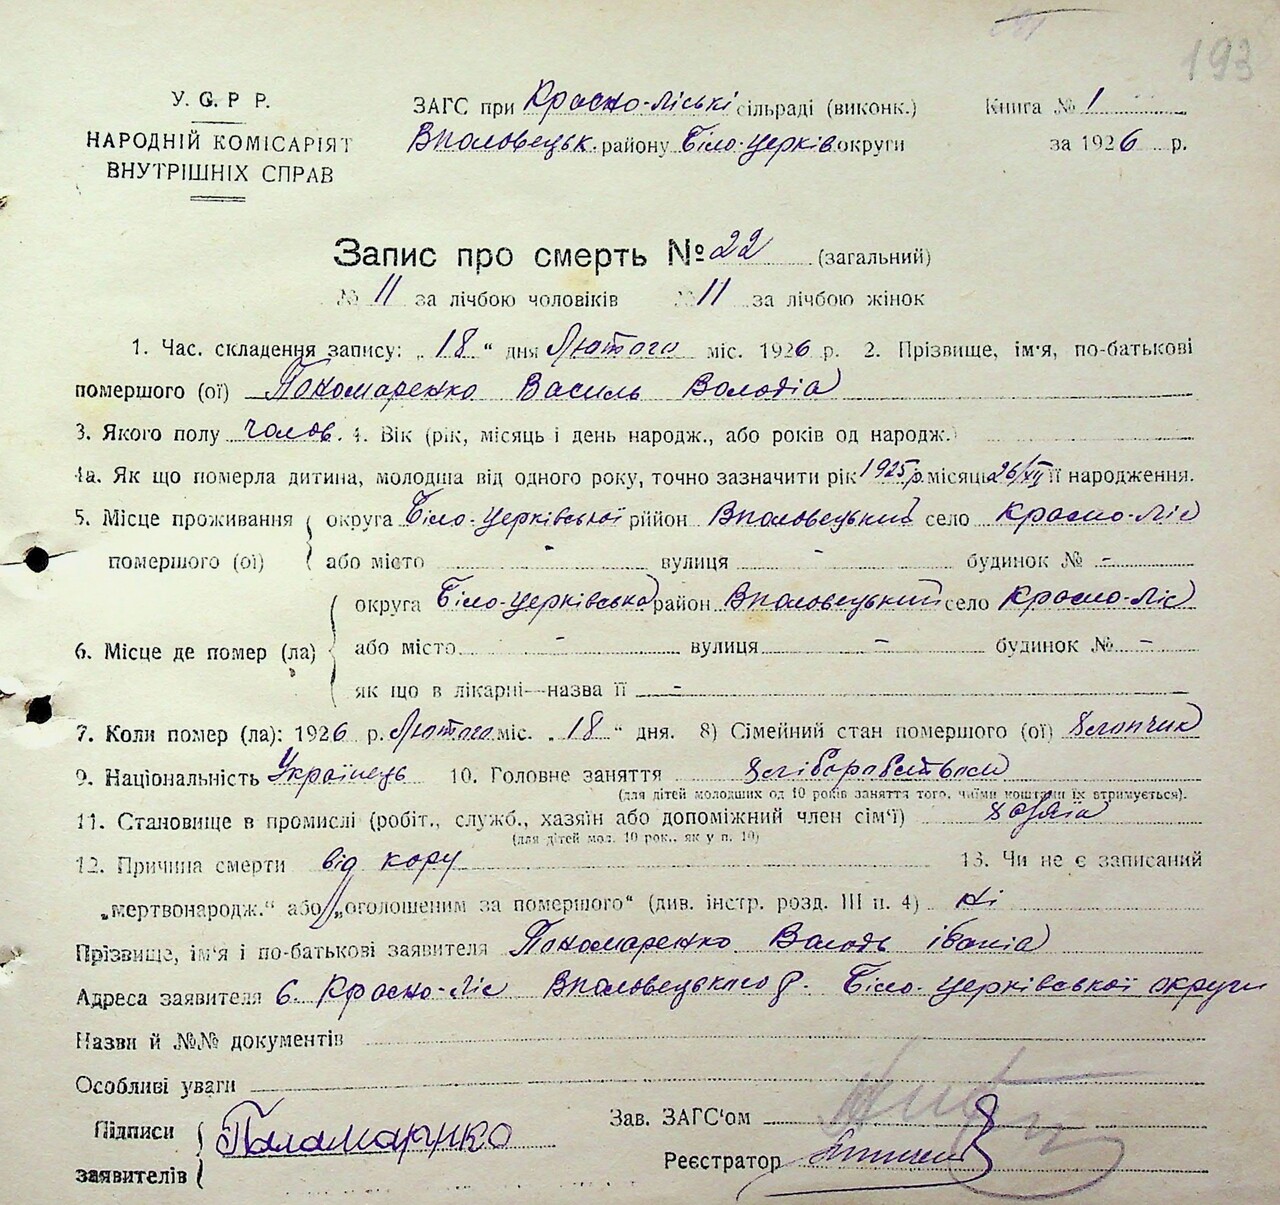 193
У. С. Р Р.
НАРОДНІЙ КОМІСАРІЯТ
ВНУТРІШНІХ СПРАВ
ЗАГС при Красно-ліські сільраді (виконк.)
Вполовецьк. району Біло-Церків округи
Книга № 1
за 1926 р.
Запис про смерть № 22 (загальний)
№ 11 за лічбою чоловіків № 11 за лічбою жінок
1. Час. складення запису: „ 18 “ дня Лютого міс. 1926 р. 2. Прізвище, ім'я, по-батькові
помершого (ої) Пономаренко Василь Володіа
3. Якого полу чолов. 4. Вік (рік, місяць і день народж., або років од народж.)
4а. Як що померла дитина, молодша від одного року, точно зазначити рік 1925 р. місяць 26/XII її народження.
5. Місце проживання помершого (ої) { округа Біло-Церківської рййон Вполовецький село Красно-Ліс
або місто - вулиця - будинок № -
6. Місце де помер (ла) { округа Біло-Церківська район Вполовецький село Красно-Ліс
або місто - вулиця - будинок № -
як що в лікарні—назва її -
7. Коли помер (ла): 1926 р. Лютого міс. „ 18 “ дня. 8) Сімейний стан помершого (ої) хлопчик
9. Національність Українець 10. Головне заняття хліборобством
(для дітей молодших од 10 років заняття того, чиїми коштами їх втримується).
11. Становище в промислі (робіт., служб., хазяїн або допоміжний член сім'ї) хазяїн
(для дітей мол. 10 рок., як у п. 10)
12. Причина смерти від кору 13. Чи не є записаний
„мертвонародж.“ або „оголошеним за помершого“ (див. інстр. розд. III п. 4) ні
Прізвище, ім'я і по-батькові заявителя Пономаренко Володь іваніа
Адреса заявителя б. Красно-Ліс Вполовецького р. Біло-Церківської округи
Назви й №№ документів
Особливі уваги
Підписи заявителів { Паламарчко
Зав. ЗАГС'ом
Реєстратор